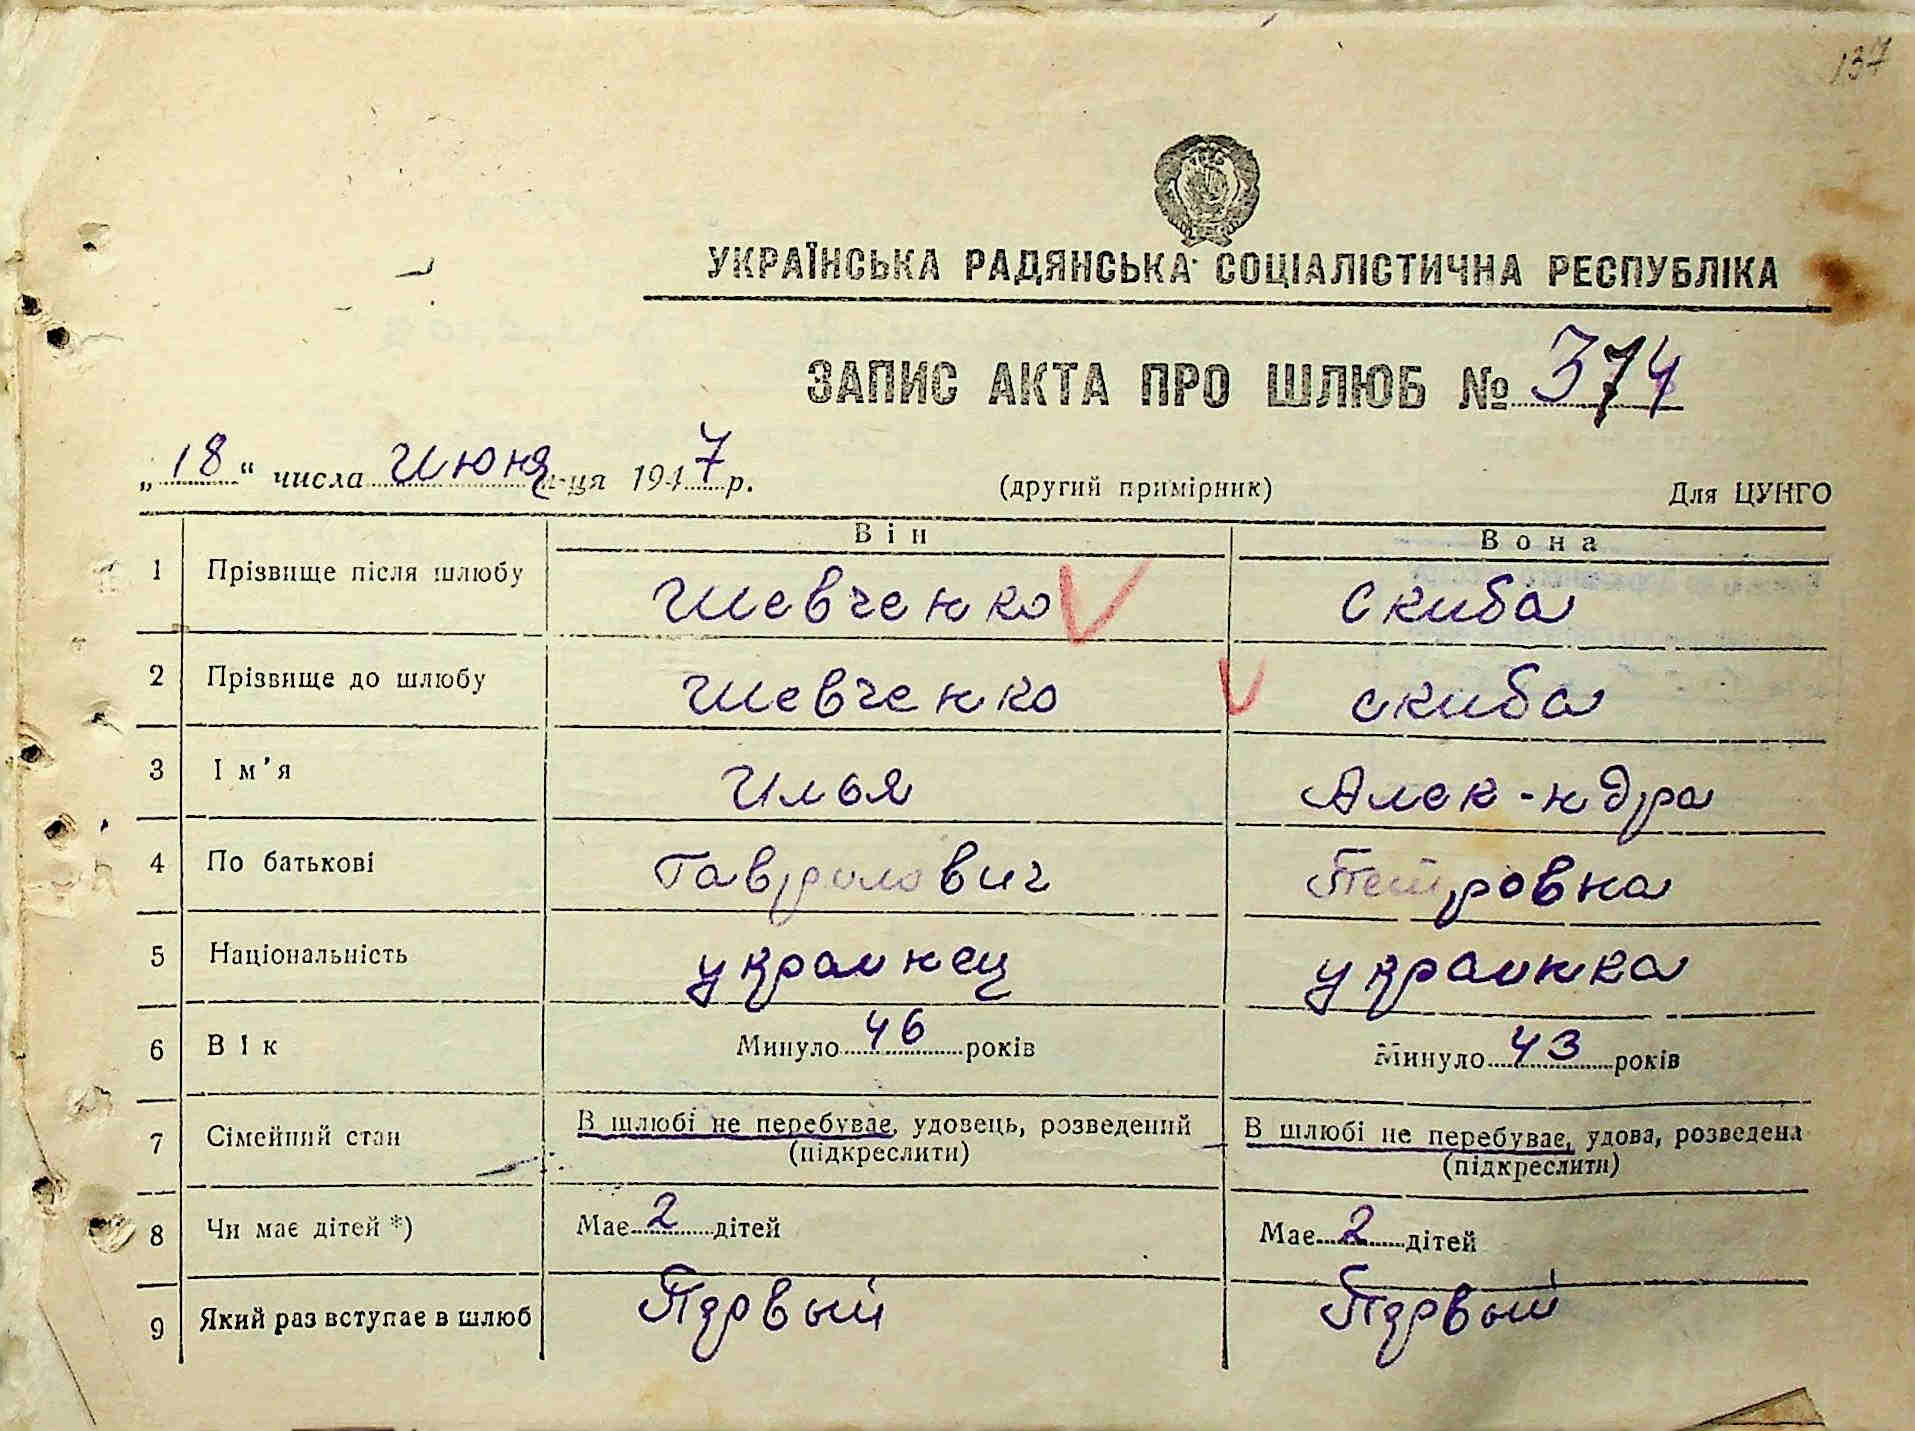 137
УКРАЇНСЬКА РАДЯНСЬКА СОЦІАЛІСТИЧНА РЕСПУБЛІКА
ЗАПИС АКТА ПРО ШЛЮБ № 374
„18“ числа Июня м-ця 1947 р. (другий примірник) Для ЦУНГО
Він Вона
1 Прізвище після шлюбу Шевченко Скиба
2 Прізвище до шлюбу Шевченко Скиба
3 Ім’я Илья Алек-ндра
4 По батькові Гаврилович Петровна
5 Національність украинец украинка
6 Вік Минуло 46 років Минуло 43 років
7 Сімейний стан В шлюбі не перебуває, удовець, розведений В шлюбі не перебуває, удова, розведена
(підкреслити) (підкреслити)
8 Чи має дітей *) Має 2 дітей Має 2 дітей
9 Який раз вступає в шлюб Первый Первый